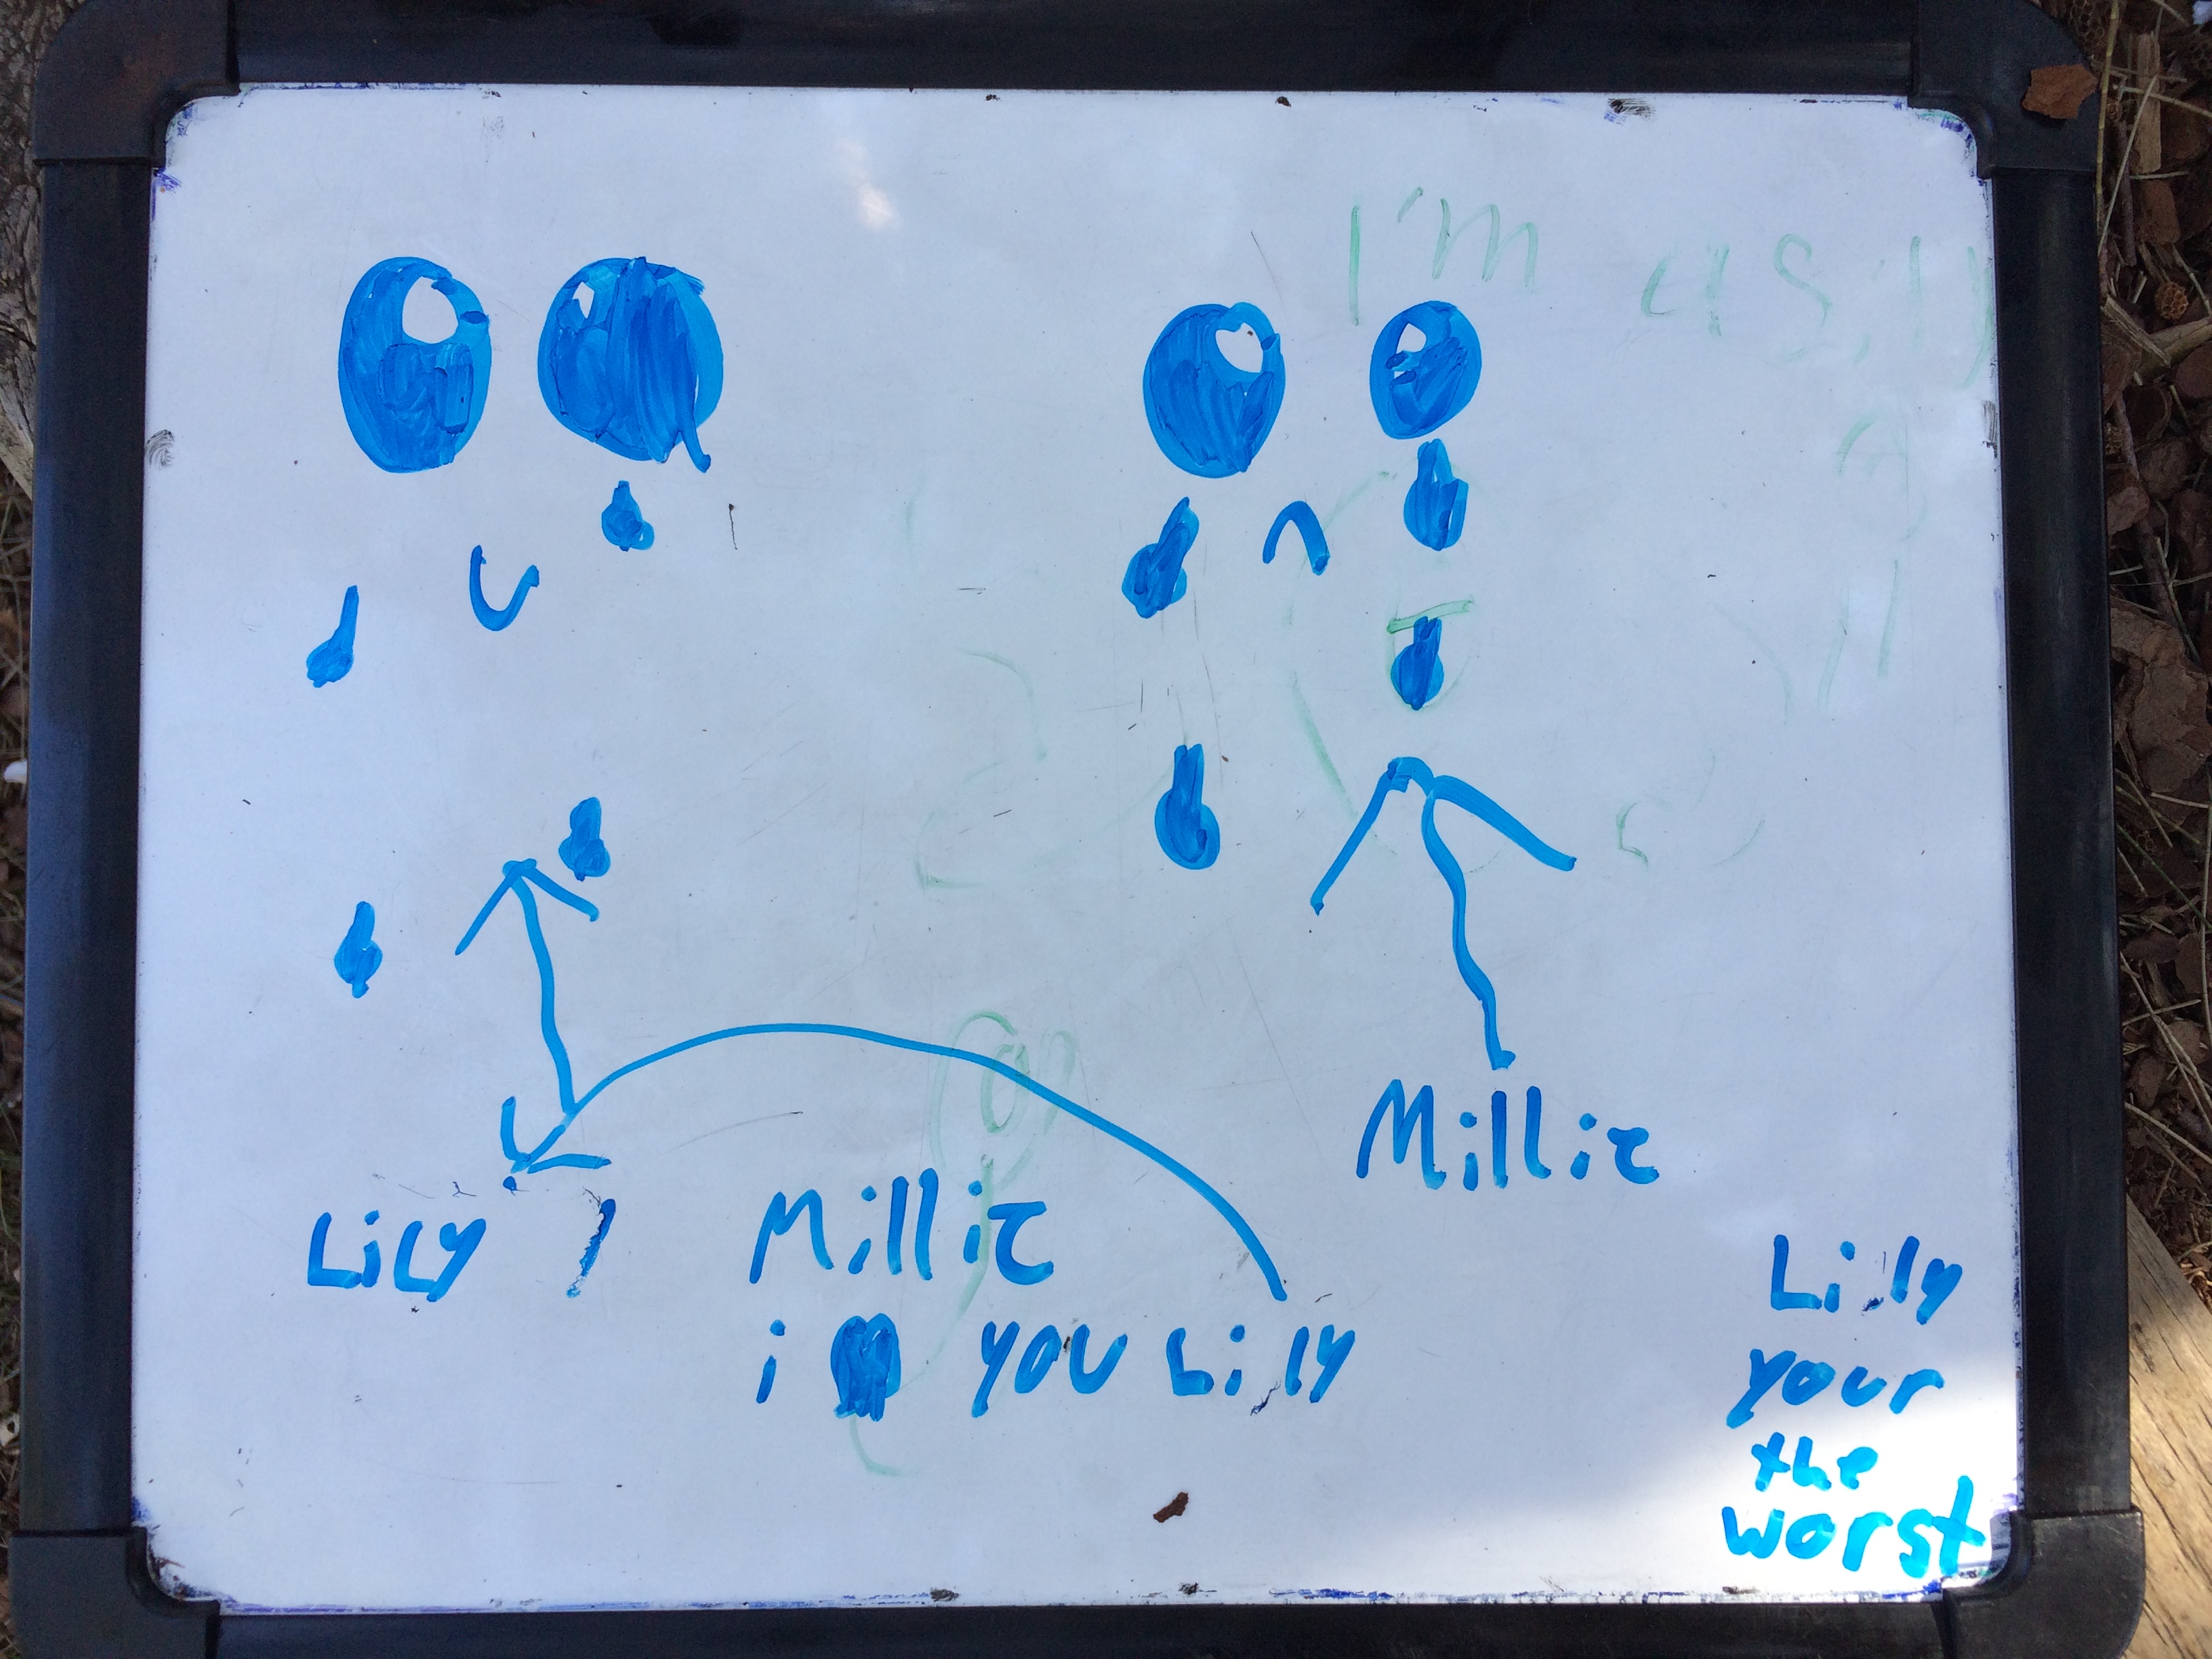 I'm a silly
Millie
Lily
Millie
i you Lilly
Lilly
your
the
worst